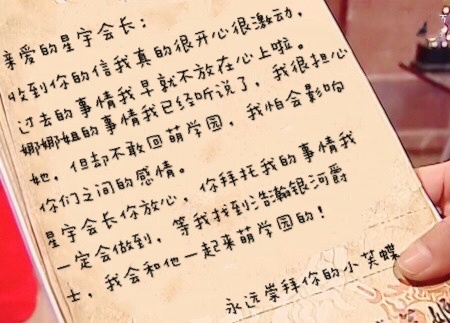 亲爱的星宇会长：
收到你的信我真的很开心很激动，
过去的事情我早就不放在心上啦。
娜娜姐的事情我已经听说了，我很担心
她，但却不敢回萌学园，我怕会影响
你们之间的感情。
星宇会长你放心，你拜托我的事情我
一定会做到，等我找到浩瀚银河爵
士，我会和他一起来萌学园的！
永远崇拜你的小笑蝶